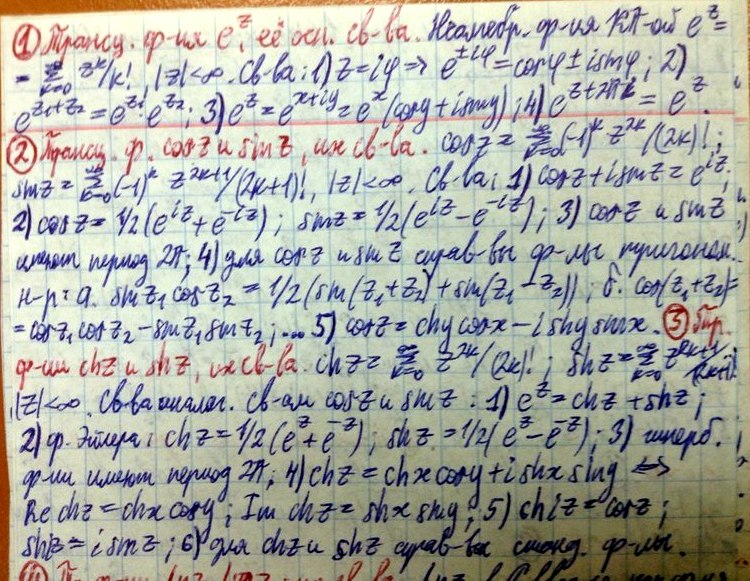 ① Трансц. ф-ия e^z, её осн. св-ва. Неалгебр. ф-ия КП-ой e^z =
= ∑_{k=0}^∞ z^k/k!, |z|<∞. Св-ва: 1) z=iφ ⇒ e^{±iφ}=cosφ±isinφ; 2)
e^{z₁+z₂}=e^{z₁}·e^{z₂}; 3) e^z=e^{x+iy}=e^x(cosy+isiny); 4) e^{z+2πk}=e^z.
② Трансц. ф. cosz и sinz, их св-ва. cosz=∑_{k=0}^∞(-1)^k z^{2k}/(2k)!;
sinz=∑_{k=0}^∞(-1)^k z^{2k+1}/(2k+1)!, |z|<∞. Св-ва: 1) cosz+isinz=e^{iz};
2) cosz=1/2(e^{iz}+e^{-iz}); sinz=1/2(e^{iz}-e^{-iz}); 3) cosz и sinz
имеют период 2π; 4) для cosz и sinz справ-вы ф-лы тригоном.
н-р: а. sinz₁cosz₂=1/2(sin(z₁+z₂)+sin(z₁-z₂)); б. cos(z₁+z₂)=
=cosz₁cosz₂-sinz₁sinz₂;... 5) cosz=chycosx-ishysinx. ③ Тр.
ф-ии chz и shz, их св-ва. chz=∑_{k=0}^∞ z^{2k}/(2k)!; shz=∑_{k=0}^∞ z^{2k+1}/(2k+1)!
,|z|<∞. Св-ва аналог. св-ам cosz и sinz: 1) e^z=chz+shz;
2) ф. Эйлера: chz=1/2(e^z+e^{-z}); shz=1/2(e^z-e^{-z}); 3) гиперб.
ф-ии имеют период 2π; 4) chz=chxcosy+ishxsiny ⇔
Re chz=chxcosy; Im chz=shxsiny; 5) chiz=cosz;
shiz=isinz; 6) для chz и shz справ-вы станд. ф-лы.